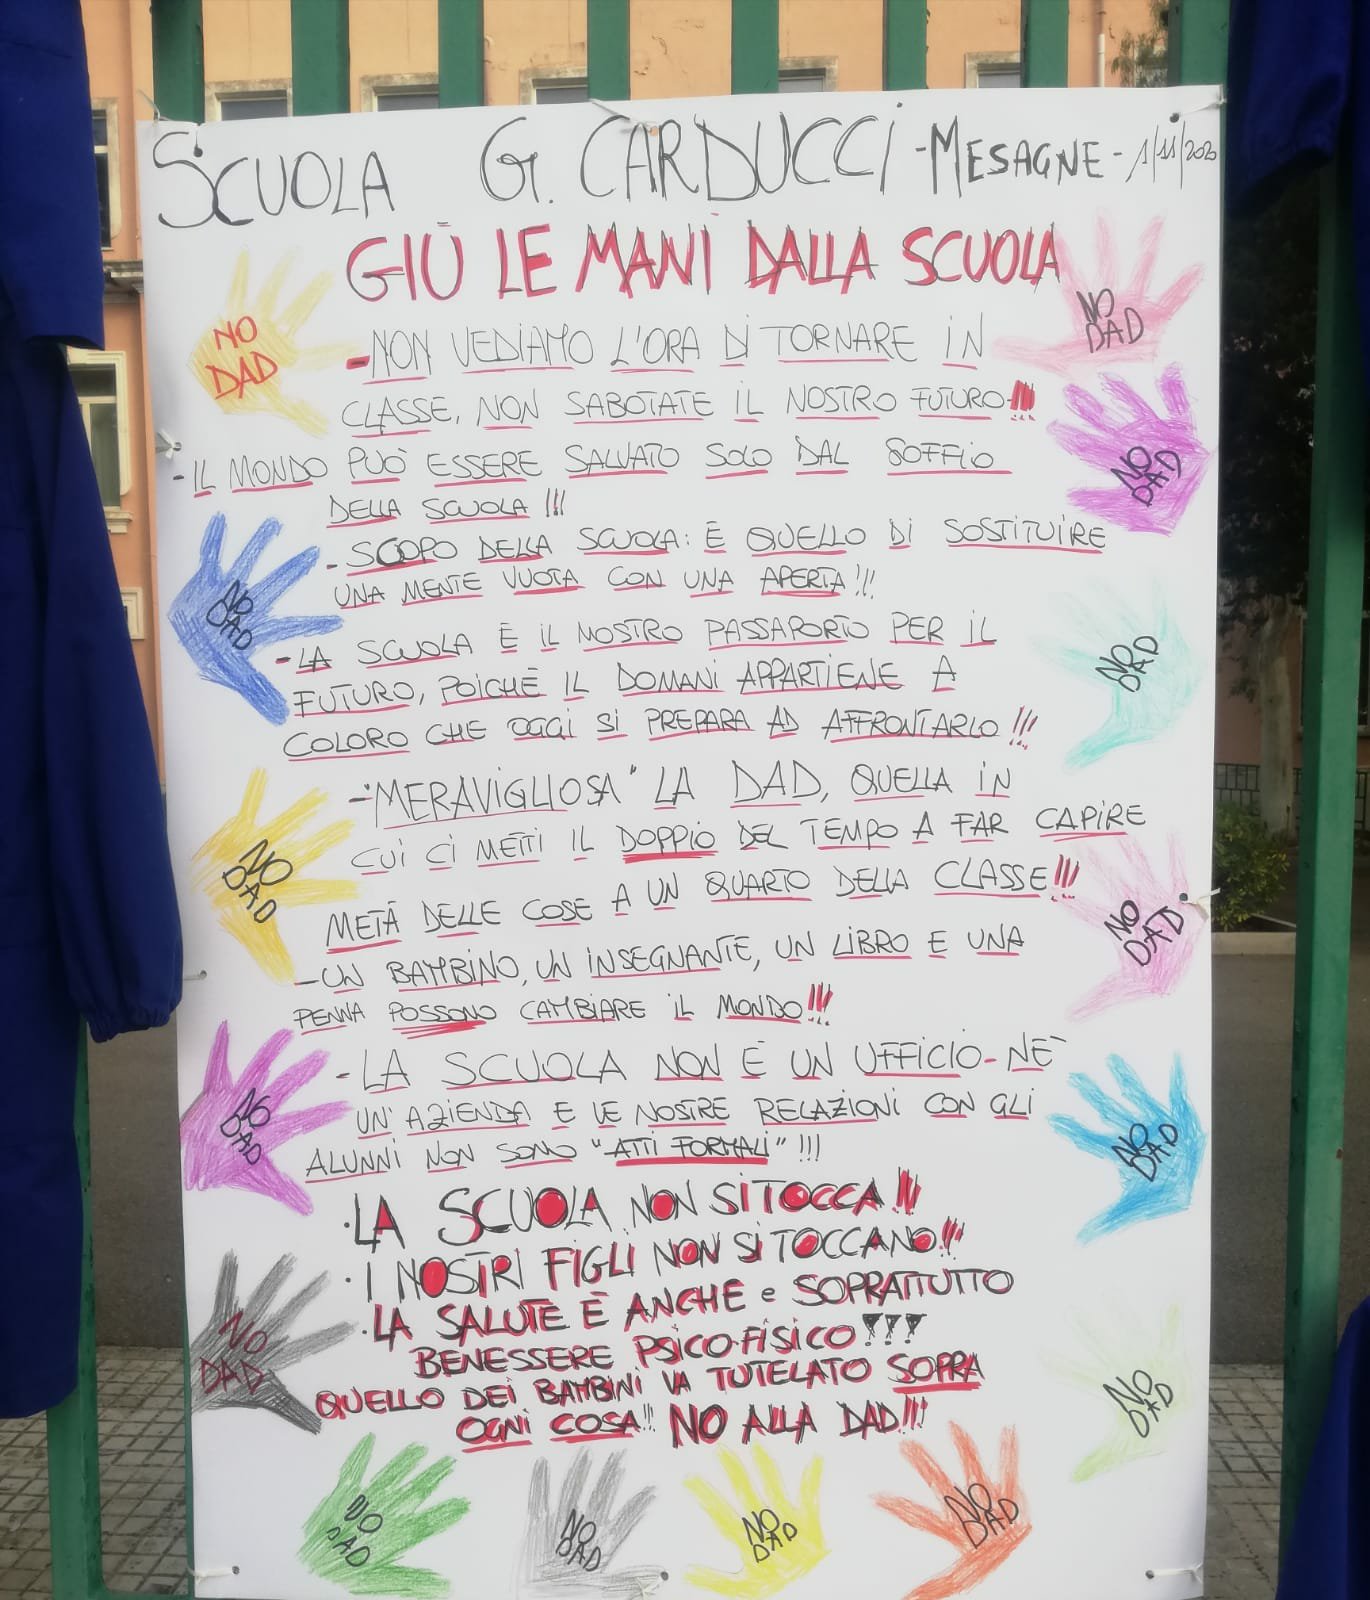 SCUOLA G. CARDUCCI - MESAGNE - 1/11/2020
GIÙ LE MANI DALLA SCUOLA
NO
DAD
NO
DAD
- NON VEDIAMO L'ORA DI TORNARE IN
CLASSE, NON SABOTATE IL NOSTRO FUTURO!!!
NO
DAD
- IL MONDO PUÒ ESSERE SALVATO SOLO DAL SOFFIO
DELLA SCUOLA!!!
- SCOPO DELLA SCUOLA: È QUELLO DI SOSTITUIRE
UNA MENTE VUOTA CON UNA APERTA!!!
NO
DAD
- LA SCUOLA È IL NOSTRO PASSAPORTO PER IL
FUTURO, POICHÈ IL DOMANI APPARTIENE A
COLORO CHE OGGI SI PREPARA AD AFFRONTARLO!!!
NO
DAD
- "MERAVIGLIOSA" LA DAD, QUELLA IN
CUI CI METTI IL DOPPIO DEL TEMPO A FAR CAPIRE
METÀ DELLE COSE A UN QUARTO DELLA CLASSE!!!
NO
DAD
NO
DAD
- UN BAMBINO, UN INSEGNANTE, UN LIBRO E UNA
PENNA POSSONO CAMBIARE IL MONDO!!!
- LA SCUOLA NON È UN UFFICIO - NÈ
UN'AZIENDA E LE NOSTRE RELAZIONI CON GLI
ALUNNI NON SONO "ATTI FORMALI"!!!
NO
DAD
NO
DAD
· LA SCUOLA NON SI TOCCA!!!
· I NOSTRI FIGLI NON SI TOCCANO!!!
· LA SALUTE È ANCHE e SOPRATTUTTO
BENESSERE PSICO-FISICO!!!
QUELLO DEI BAMBINI VA TUTELATO SOPRA
OGNI COSA!! NO ALLA DAD!!!
NO
DAD
NO
DAD
NO
DAD
NO
DAD
NO
DAD
NO
DAD